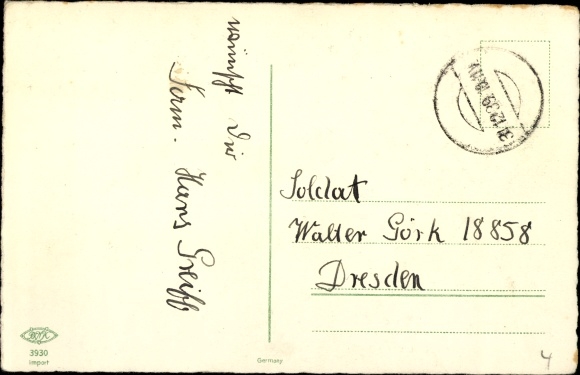 wünscht Dir
Fam. Hans Greiff
31.12.39
Soldat
Walter Görk 18858
Dresden
3930
Import
Germany
4